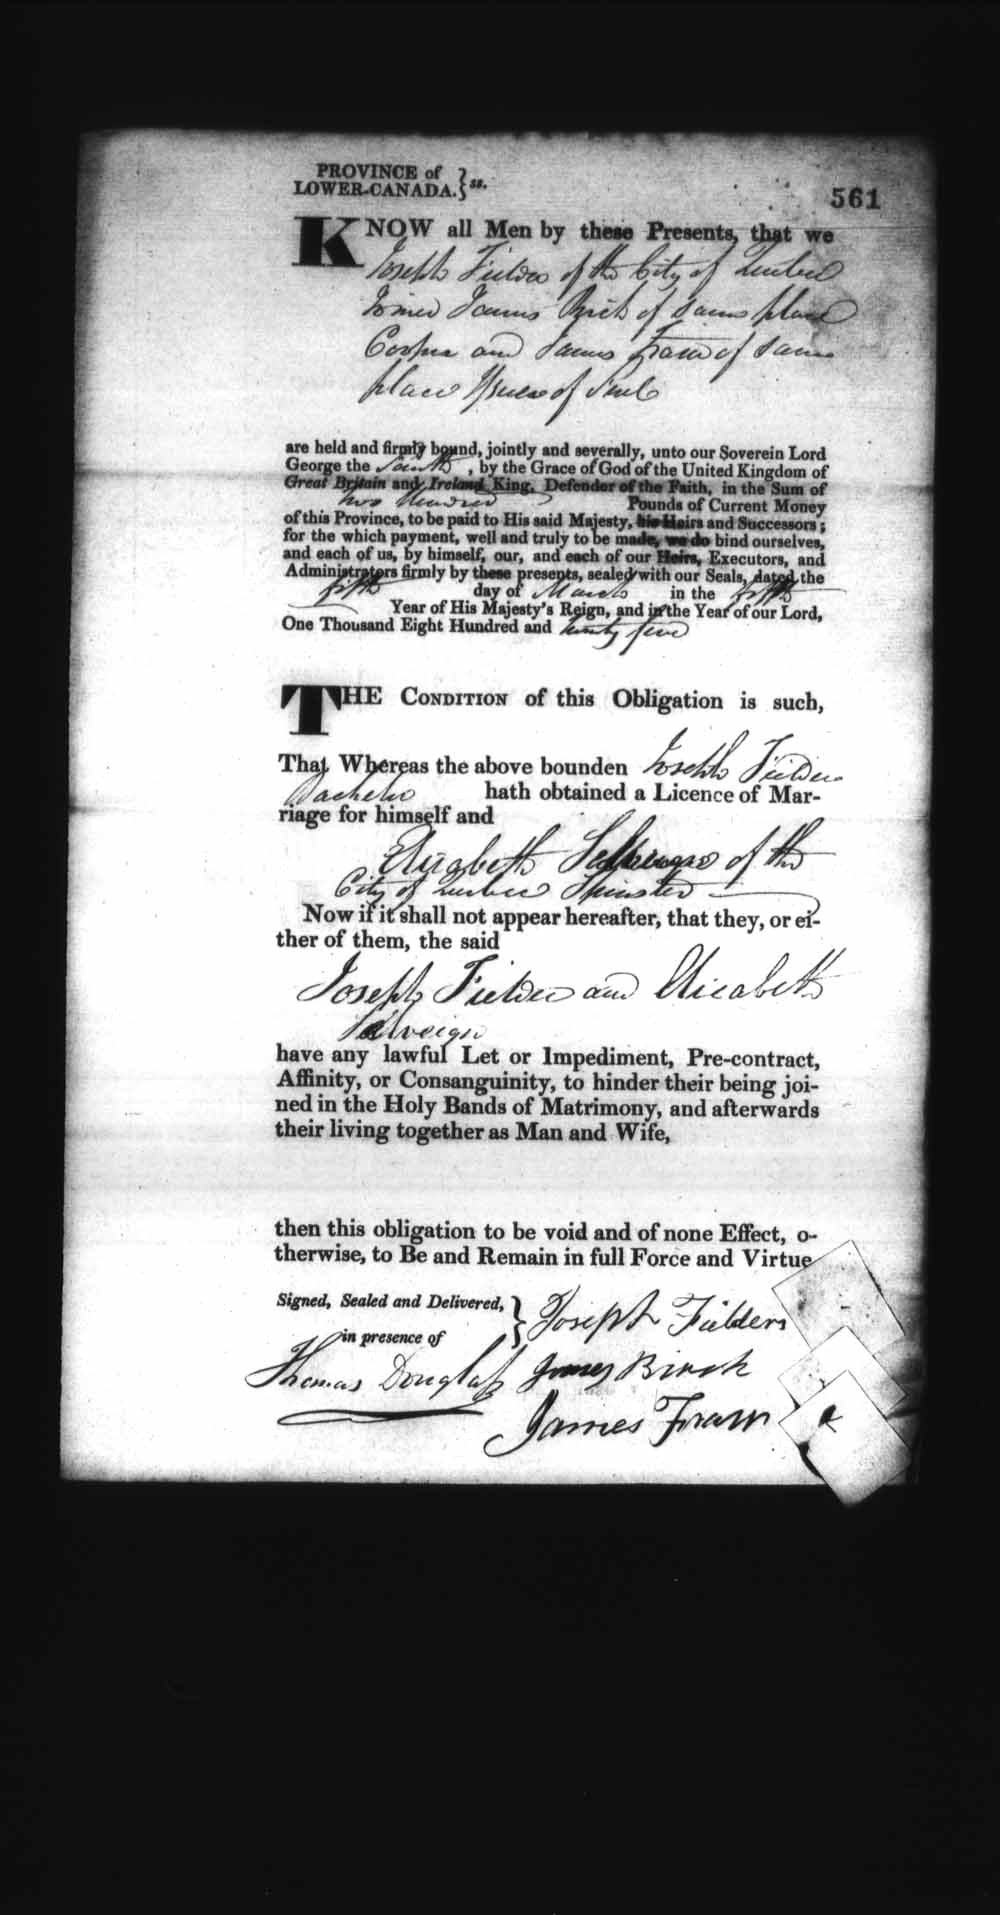 PROVINCE of
LOWER-CANADA. } ss.
561
KNOW all Men by these Presents, that we
Joseph Fielders of the City of Quebec
Joiner James Birch of same place
Cooper and James Fraser of same
place
are held and firmly bound, jointly and severally, unto our Soverein Lord
George the Fourth, by the Grace of God of the United Kingdom of
Great Britain and Ireland King, Defender of the Faith, in the Sum of
two Hundred Pounds of Current Money
of this Province, to be paid to His said Majesty, his Heirs and Successors;
for the which payment, well and truly to be made, we do bind ourselves,
and each of us, by himself, our, and each of our Heirs, Executors, and
Administrators firmly by these presents, sealed with our Seals, dated the
fifth day of March in the fifth
Year of His Majesty's Reign, and in the Year of our Lord,
One Thousand Eight Hundred and twenty five
THE CONDITION of this Obligation is such,
That Whereas the above bounden Joseph Fielders
Bachelor hath obtained a Licence of Mar-
riage for himself and
Elizabeth of the
City of Quebec Spinster
Now if it shall not appear hereafter, that they, or ei-
ther of them, the said
Joseph Fielders and Elizabeth
have any lawful Let or Impediment, Pre-contract,
Affinity, or Consanguinity, to hinder their being joi-
ned in the Holy Bands of Matrimony, and afterwards
their living together as Man and Wife,
then this obligation to be void and of none Effect, o-
therwise, to Be and Remain in full Force and Virtue
Signed, Sealed and Delivered, } Joseph Fielders
in presence of
Thomas Douglass James Birch
James Fraser